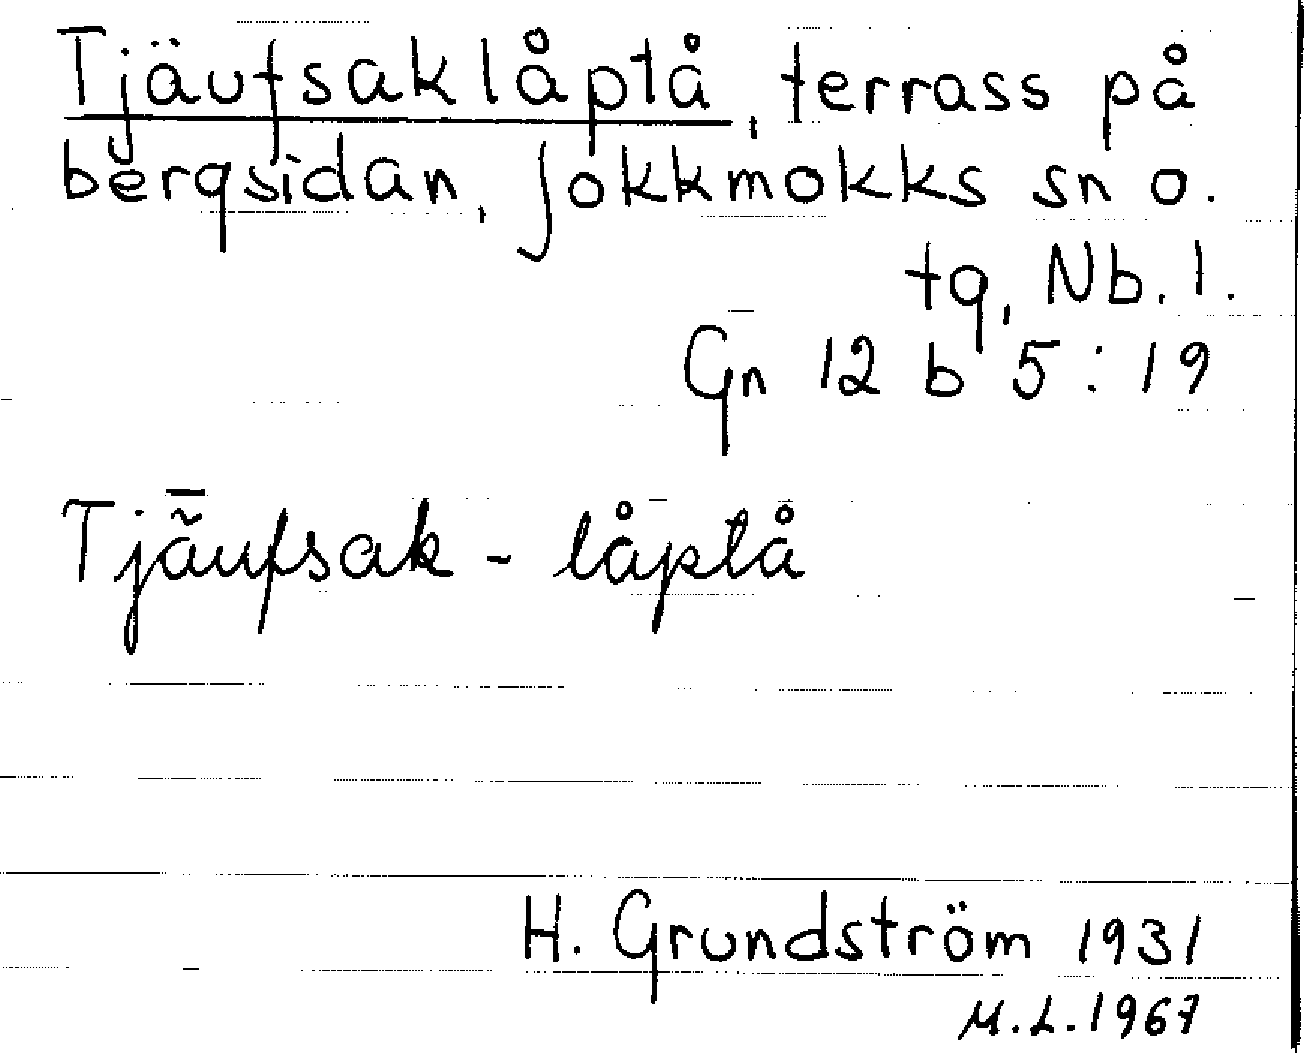 Tjäutsaklåptå, terrass på
bergsidan, Jokkmokks sn o.
tg, Nb. l.
Gn 12 b 5:19
Tjä̃̄utsak - låptå
H. Grundström 1931
M.L. 1967